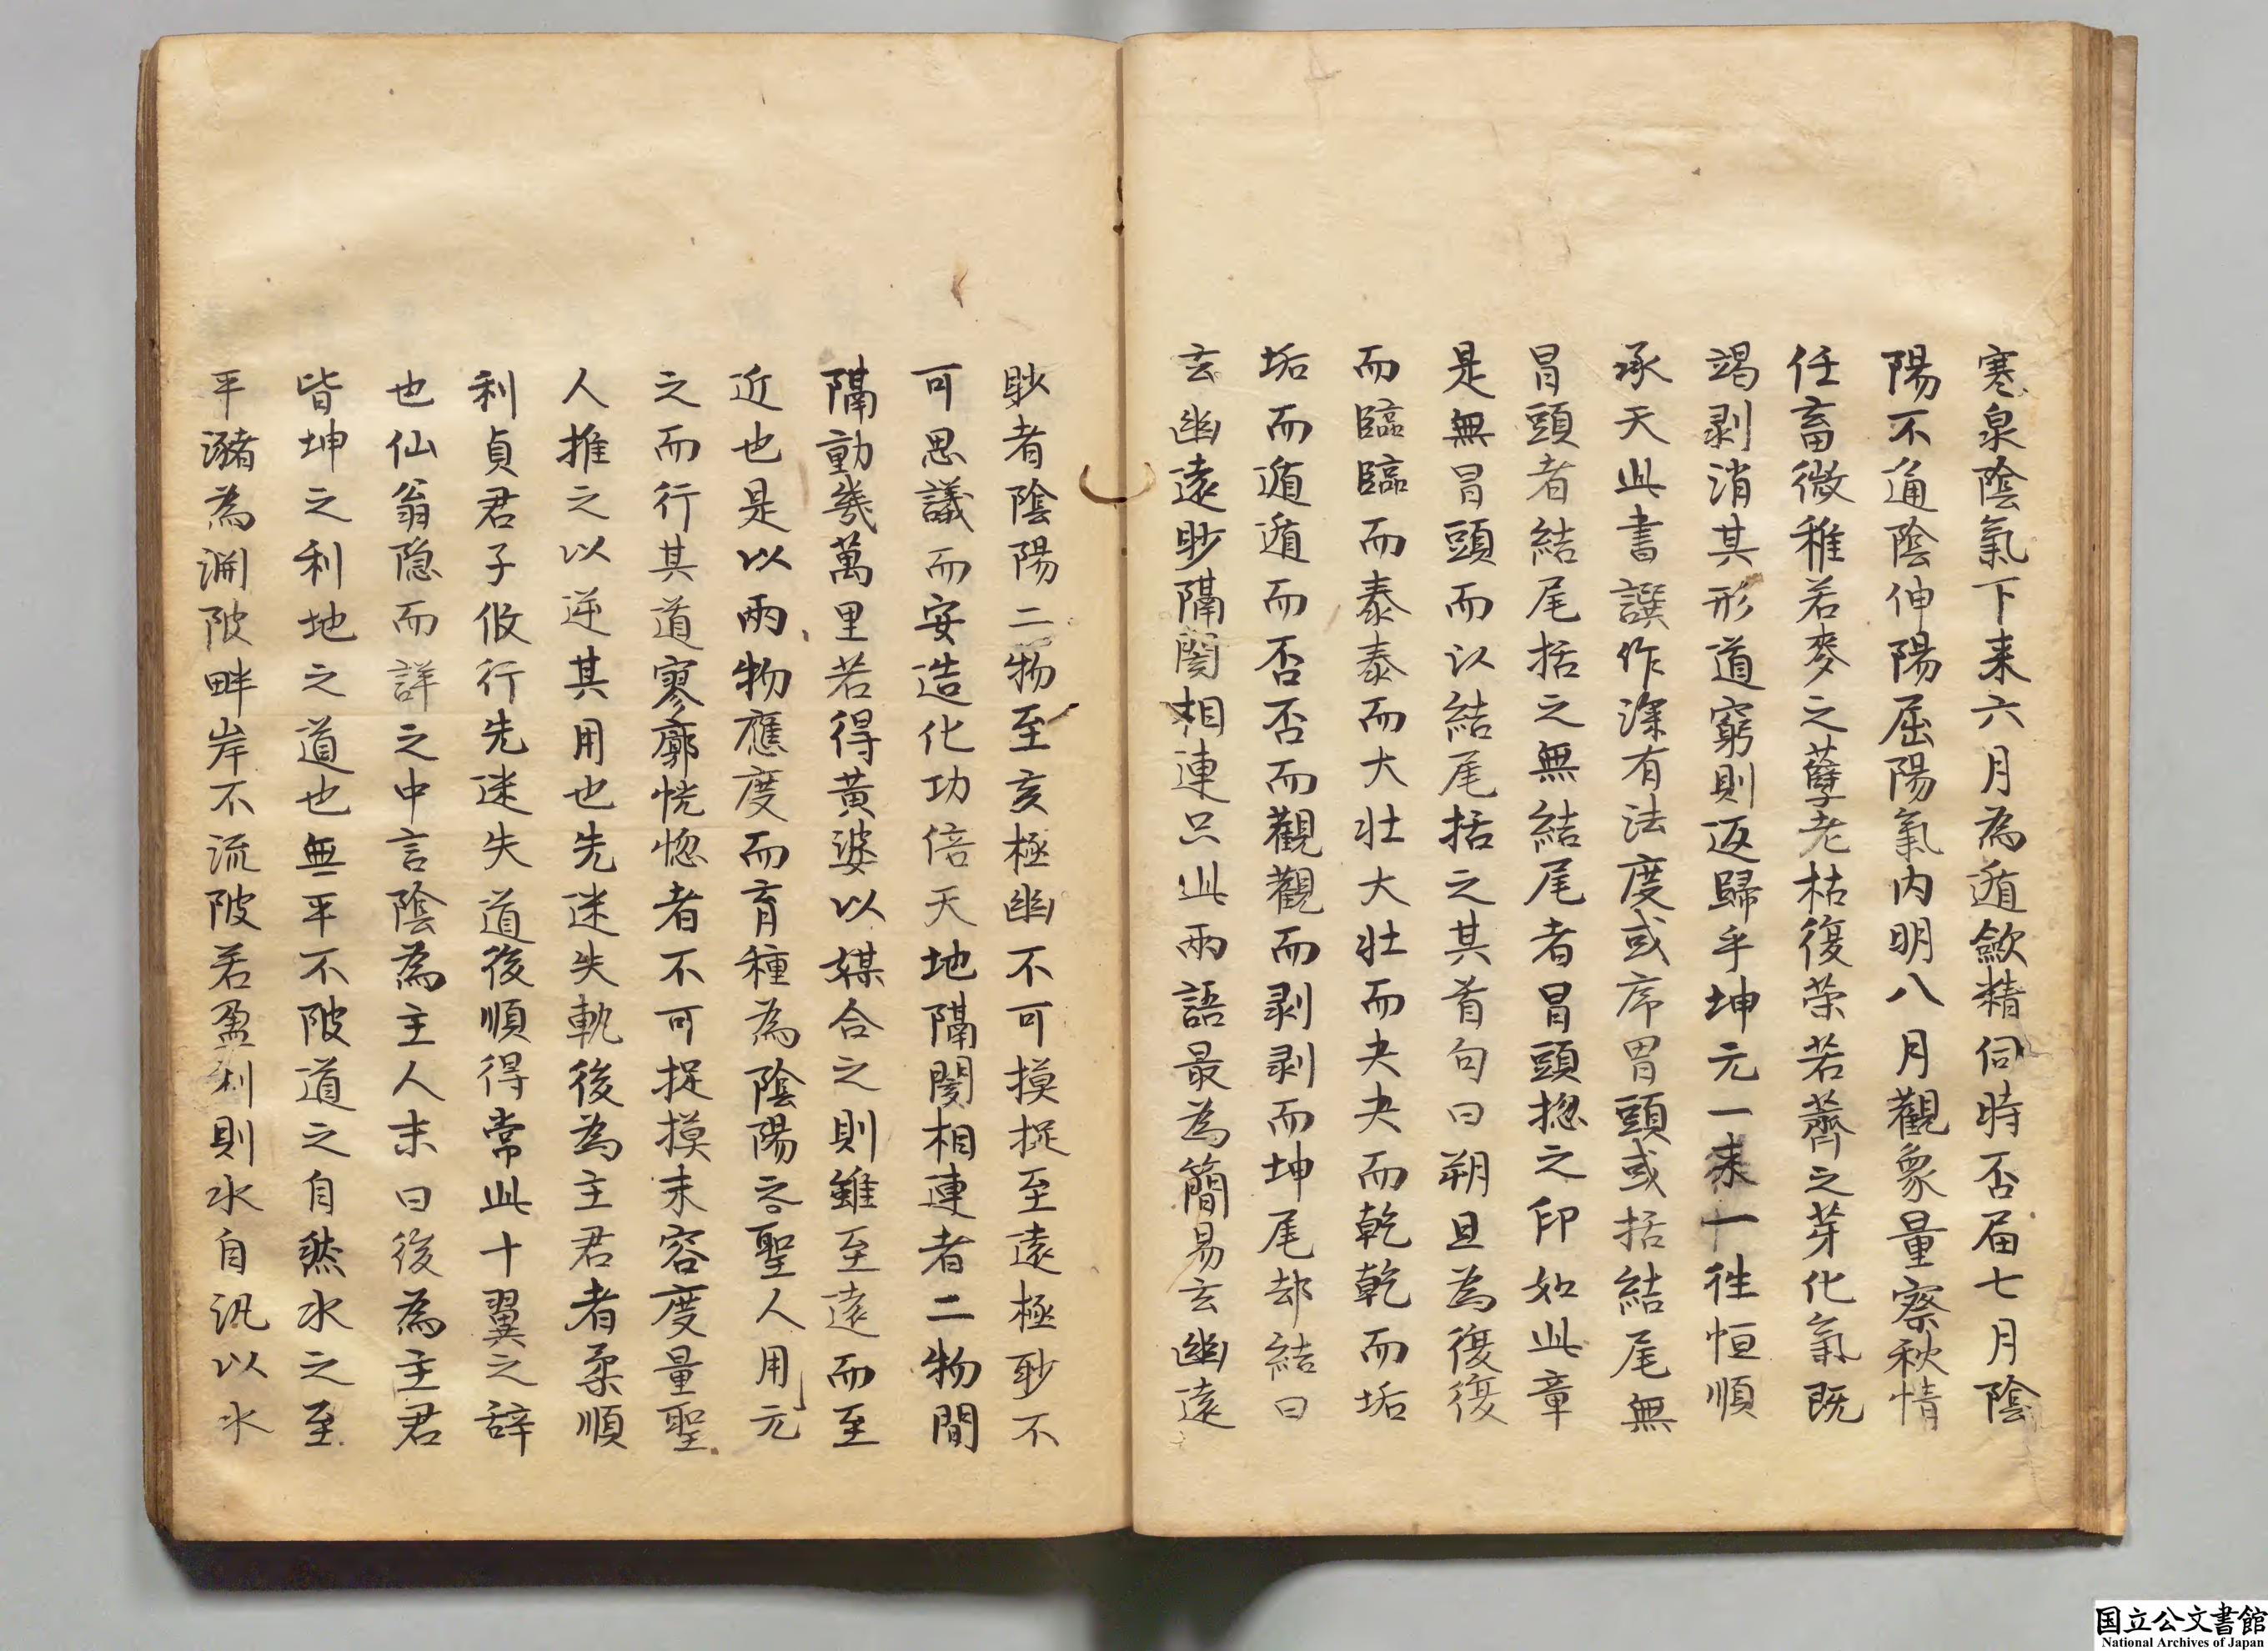 寒泉陰氣下来六月為遁斂精伺時否届七月陰
陽不通陰伸陽屈陽氣内明八月觀象量察秋情
任畜微稚若麥之蘖老枯復荣若薺之芽化氣既
竭剥消其形道窮則返歸乎坤元一来一徃恒順
承天此書譔作深有法度或席冐頭或括結尾無
冐頭者結尾括之無結尾者冐頭揔之印如此章
是無冐頭而以結尾括之其首句曰朔旦為復復
而臨臨而泰泰而大壮大壮而夬夬而乾乾而垢
垢而遁遁而否否而觀觀而剥剥而坤尾却結曰
玄幽遠眇隔閡相連只此兩語最為簡易玄幽遠
眇者陰陽二物至玄極幽不可摸捉至遠極眇不
可思議而安造化功倍天地隔閡相連者二物間
隔動幾萬里若得黄婆以媒合之則雖至遠而至
近也是以兩物應度而育種為陰陽之谷聖人用元
之而行其道寥廓恍惚者不可捉摸未容度量聖
人推之以逆其用也先迷失軌後為主君者柔順
利貞君子攸行先迷失道後順得常此十翼之辞
也仙翁隐而詳之中言陰為主人末曰後為主君
皆坤之利地之道也無平不陂道之自然水之至
平瀦為渊陂畔岸不流陂若盈利則水自汎以水
国立公文書館
National Archives of Japan